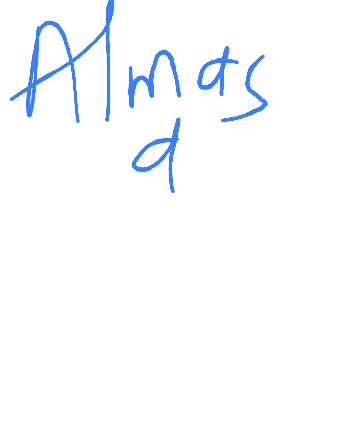 Almas
a